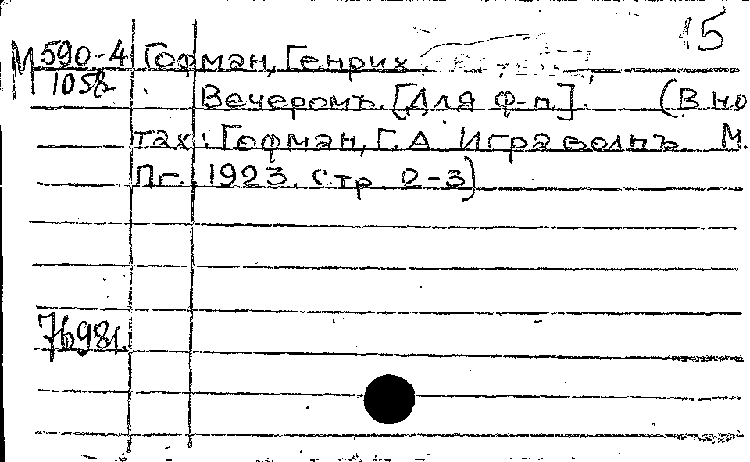 15
М 590-4 Гофман, Генрих
1058 Вечеромъ. [Для ф-п.] (В но
тах: Гофман, Г.А. Игра волнъ М.
Пг. 1923. Стр 2-3)
76981.